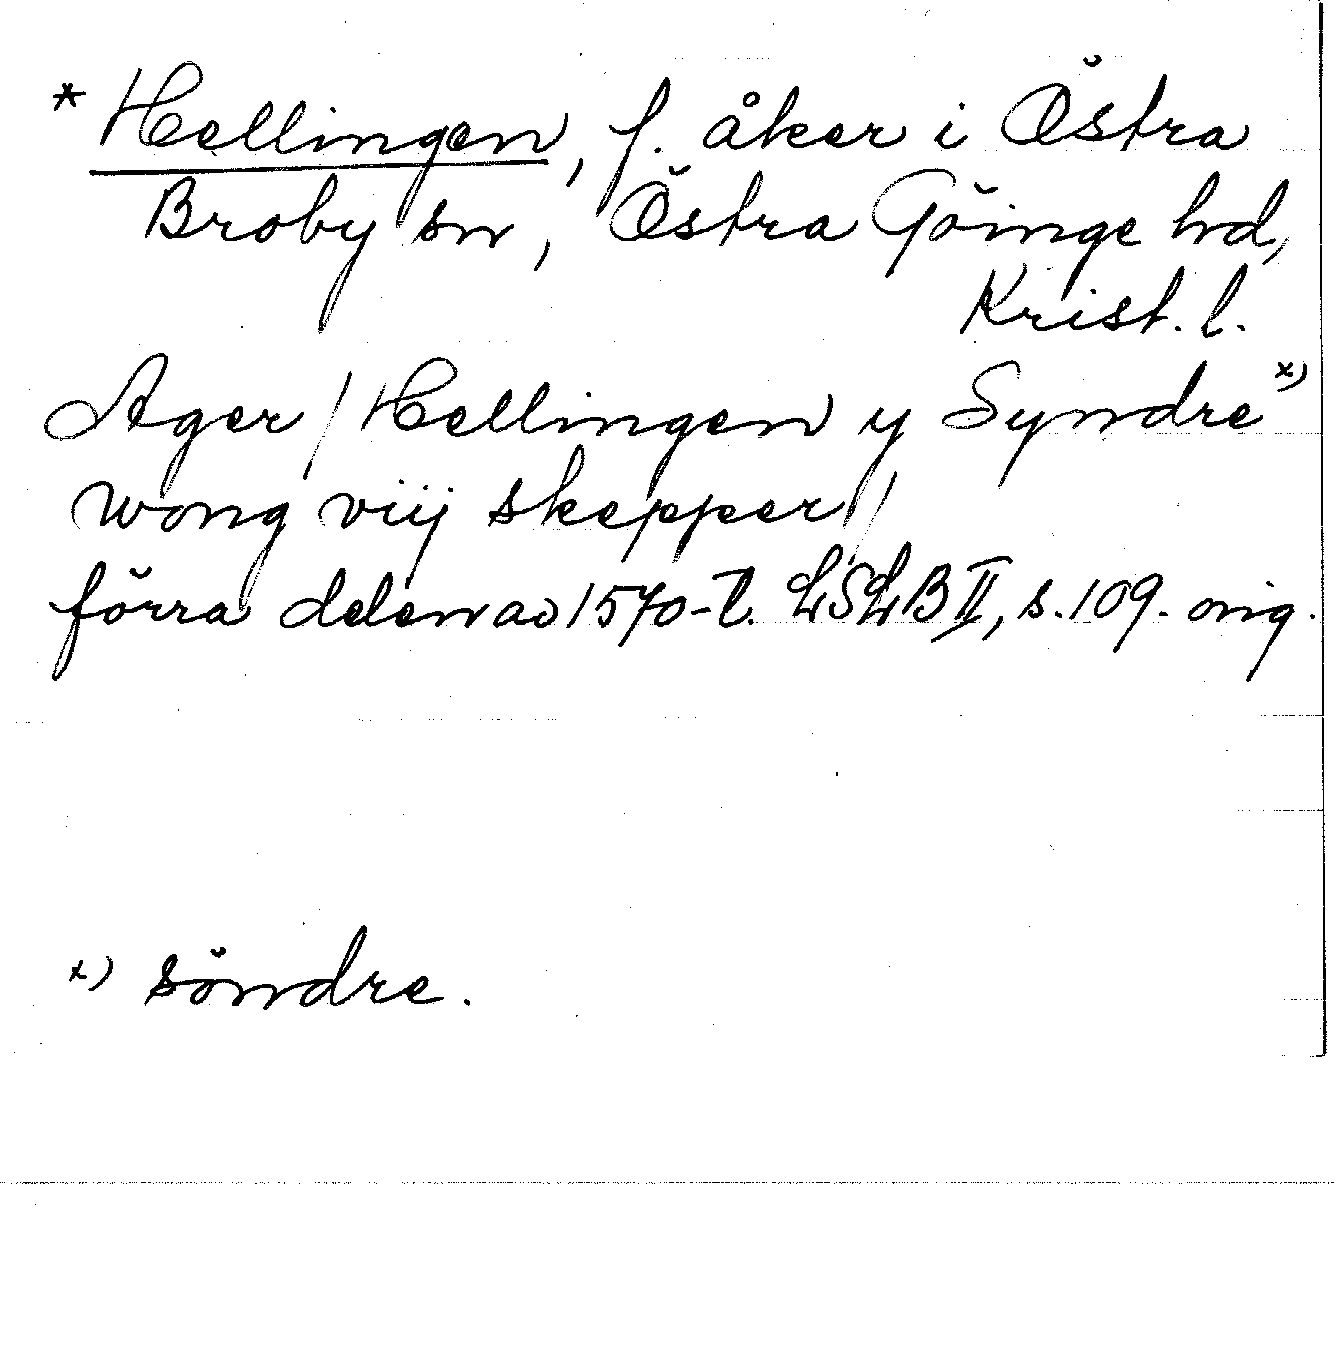 * Hellingen, f. åker i Östra
Broby sn, Östra Göinge hd,
Krist. l.
Ager / Hellingen y Syndre x)
wong viij skepper /
förra delen av 1570-t. LSLB II, s. 109. orig.
x) söndre.